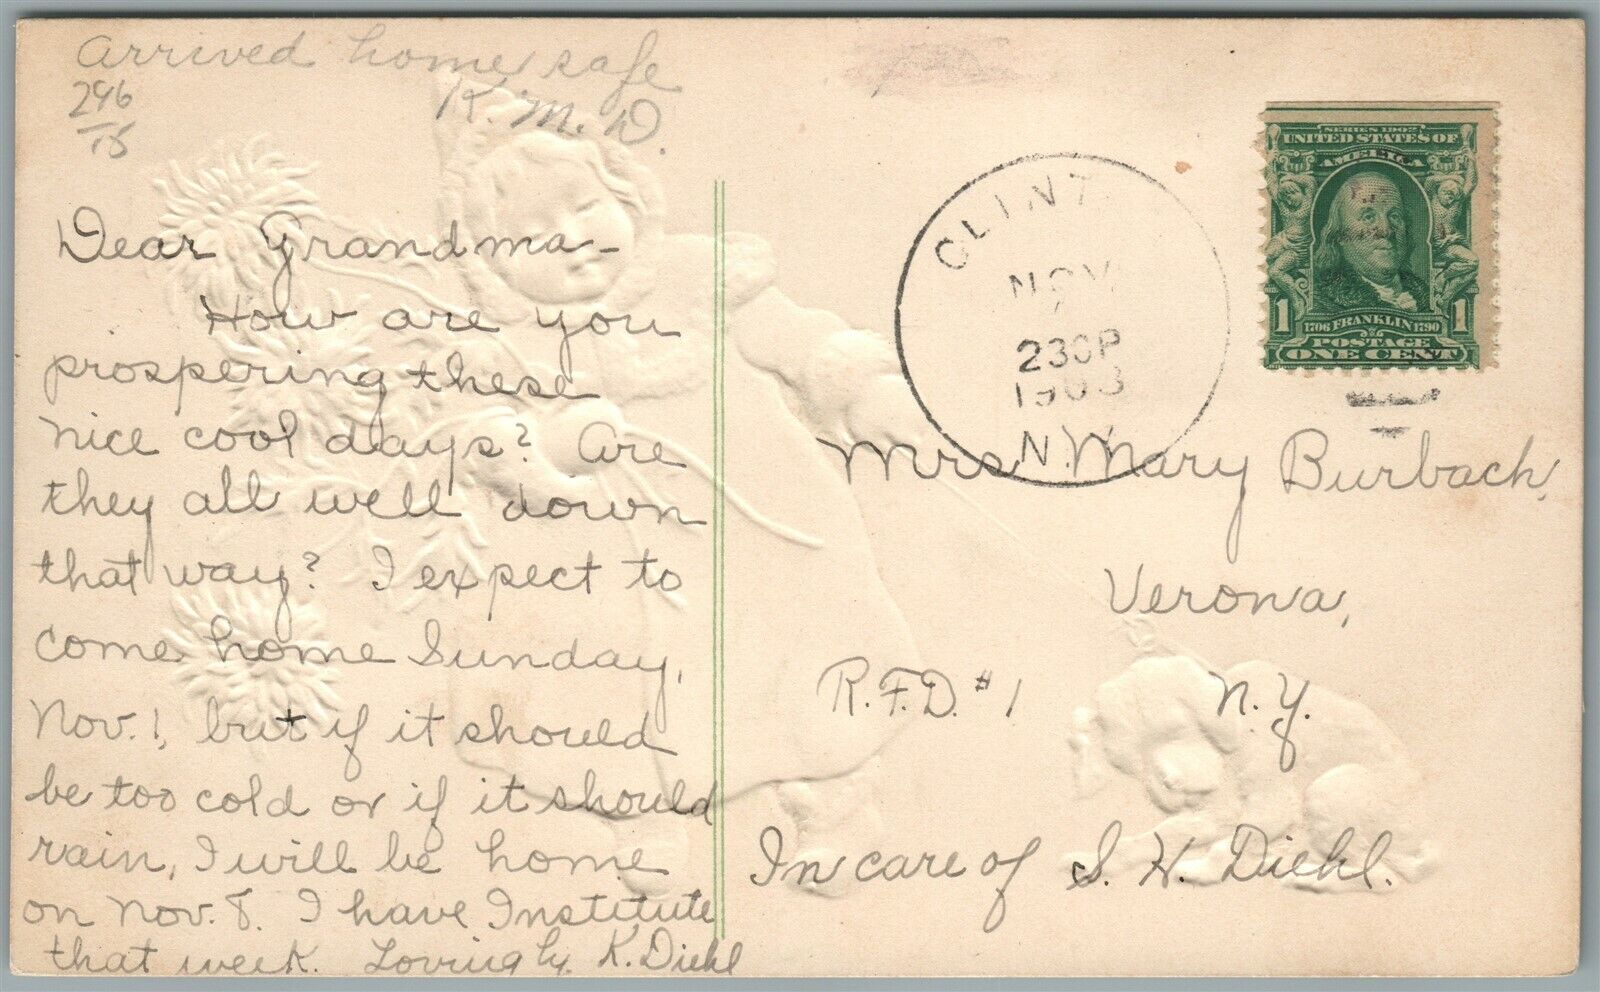 Arrived home safe
K. M. D.
296
Dear Grandma-
How are you
prospering these
nice cool days? Are
they all well down
that way? I expect to
come home Sunday,
Nov. 1, but if it should
be too cold or if it should
rain, I will be home
on Nov. 8. I have Institute
that week. Lovingly, K. Diehl
CLINT
NOV
230P
1908
N.Y.
SERIES 1902
UNITED STATES OF
AMERICA
1 1706 FRANKLIN 1790 1
POSTAGE
ONE CENT
Mrs Mary Burbach,
Verona,
R.F.D. #1 N.Y.
In care of S. H. Diehl.